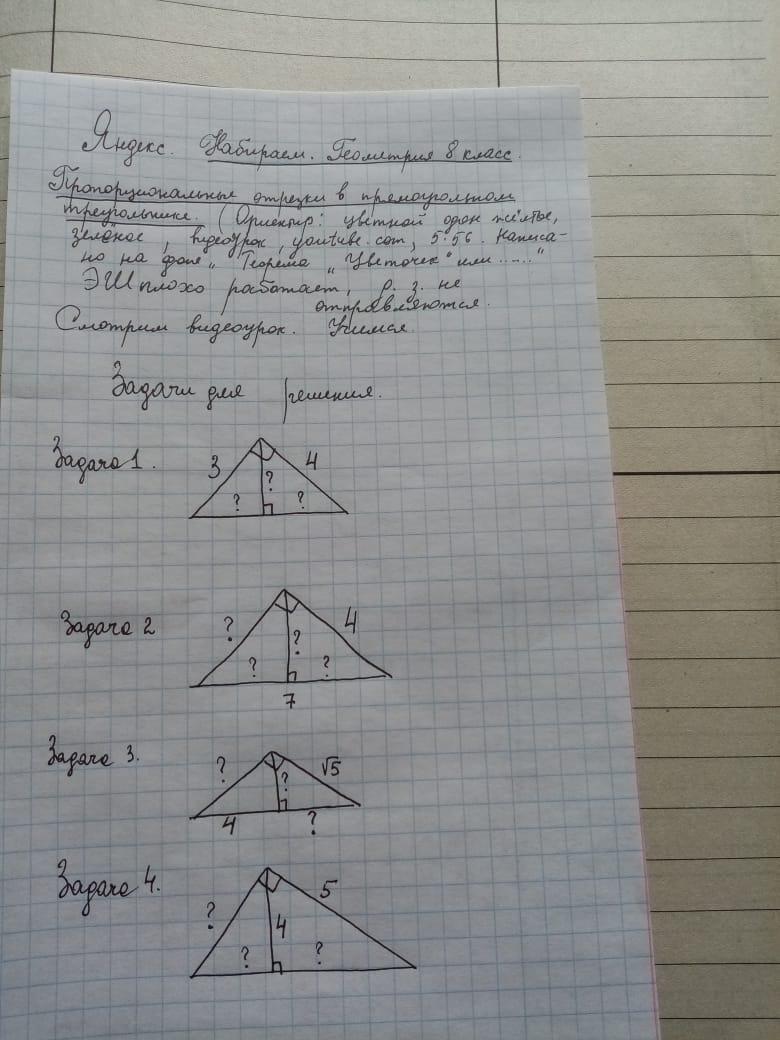 Яндекс. Набираем. Геометрия 8 класс.
Пропорциональные отрезки в прямоугольном
треугольнике. (Ориентир: цветной одон жёлтое,
зелёное, видеоурок, youtube.com, 5:56. Написа-
но на фоне „Теорема „Цветочек" или ....."
ЭШ плохо работает, р. з. не
отправляются.
Смотрим видеоурок. Учимся.
Задачи для решения.
Задача 1.
3
4
?
?
?
Задача 2
?
4
?
?
?
7
Задача 3.
?
√5
?
4
?
Задача 4.
?
5
4
?
?